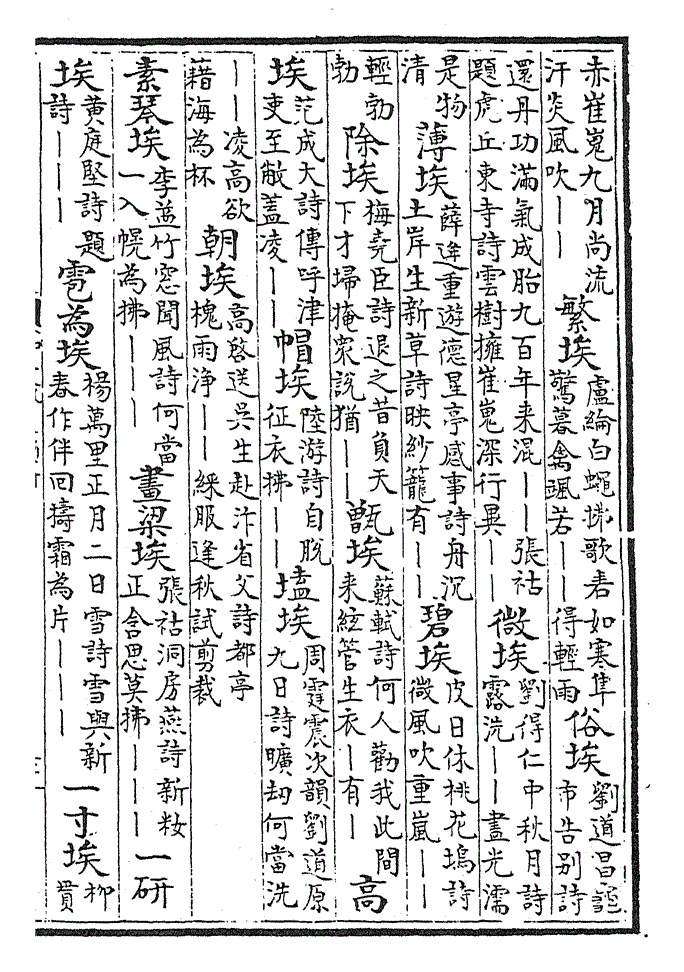 赤崔嵬九月尚流
汗炎風吹——
繁埃
盧綸白蠅拂歌君如寒隼
驚暮禽颯若——得輕雨
俗埃
劉道昌鬻
市告別詩
還丹功滿氣成胎九百年来混——張祜
題虎丘東寺詩雲樹擁崔嵬深行異——
微埃
劉得仁中秋月詩
露洗——盡光濡
是物
清
薄埃
薛逢重遊德星亭感事詩舟沉
土岸生新草詩映紗籠有——
碧埃
皮日休桃花塢詩
微風吹重嵐——
輕勃
勃
除埃
梅堯臣詩退之昔負天
下才埽掩衆説猶——
甑埃
蘇軾詩何人勸我此間
来絃管生衣—有—
高
埃
范成大詩傳呼津
吏至敝蓋凌——
帽埃
陸游詩自脱
征衣拂——
壒埃
周霆震次韻劉道原
九日詩曠刼何當洗
——凌高欲
藉海為杯
朝埃
高啓送吳生赴汴省父詩都亭
槐雨浄——綵服逢秋試剪裁
素琴埃
李益竹窓聞風詩何當
一入幌為拂———
畫梁埃
張祜洞房燕詩新妝
正含思莫拂———
一研
埃
黄庭堅詩題
詩———
雹為埃
楊萬里正月二日雪詩雪與新
春作伴回擣霜為片———
一寸埃
柳
貫